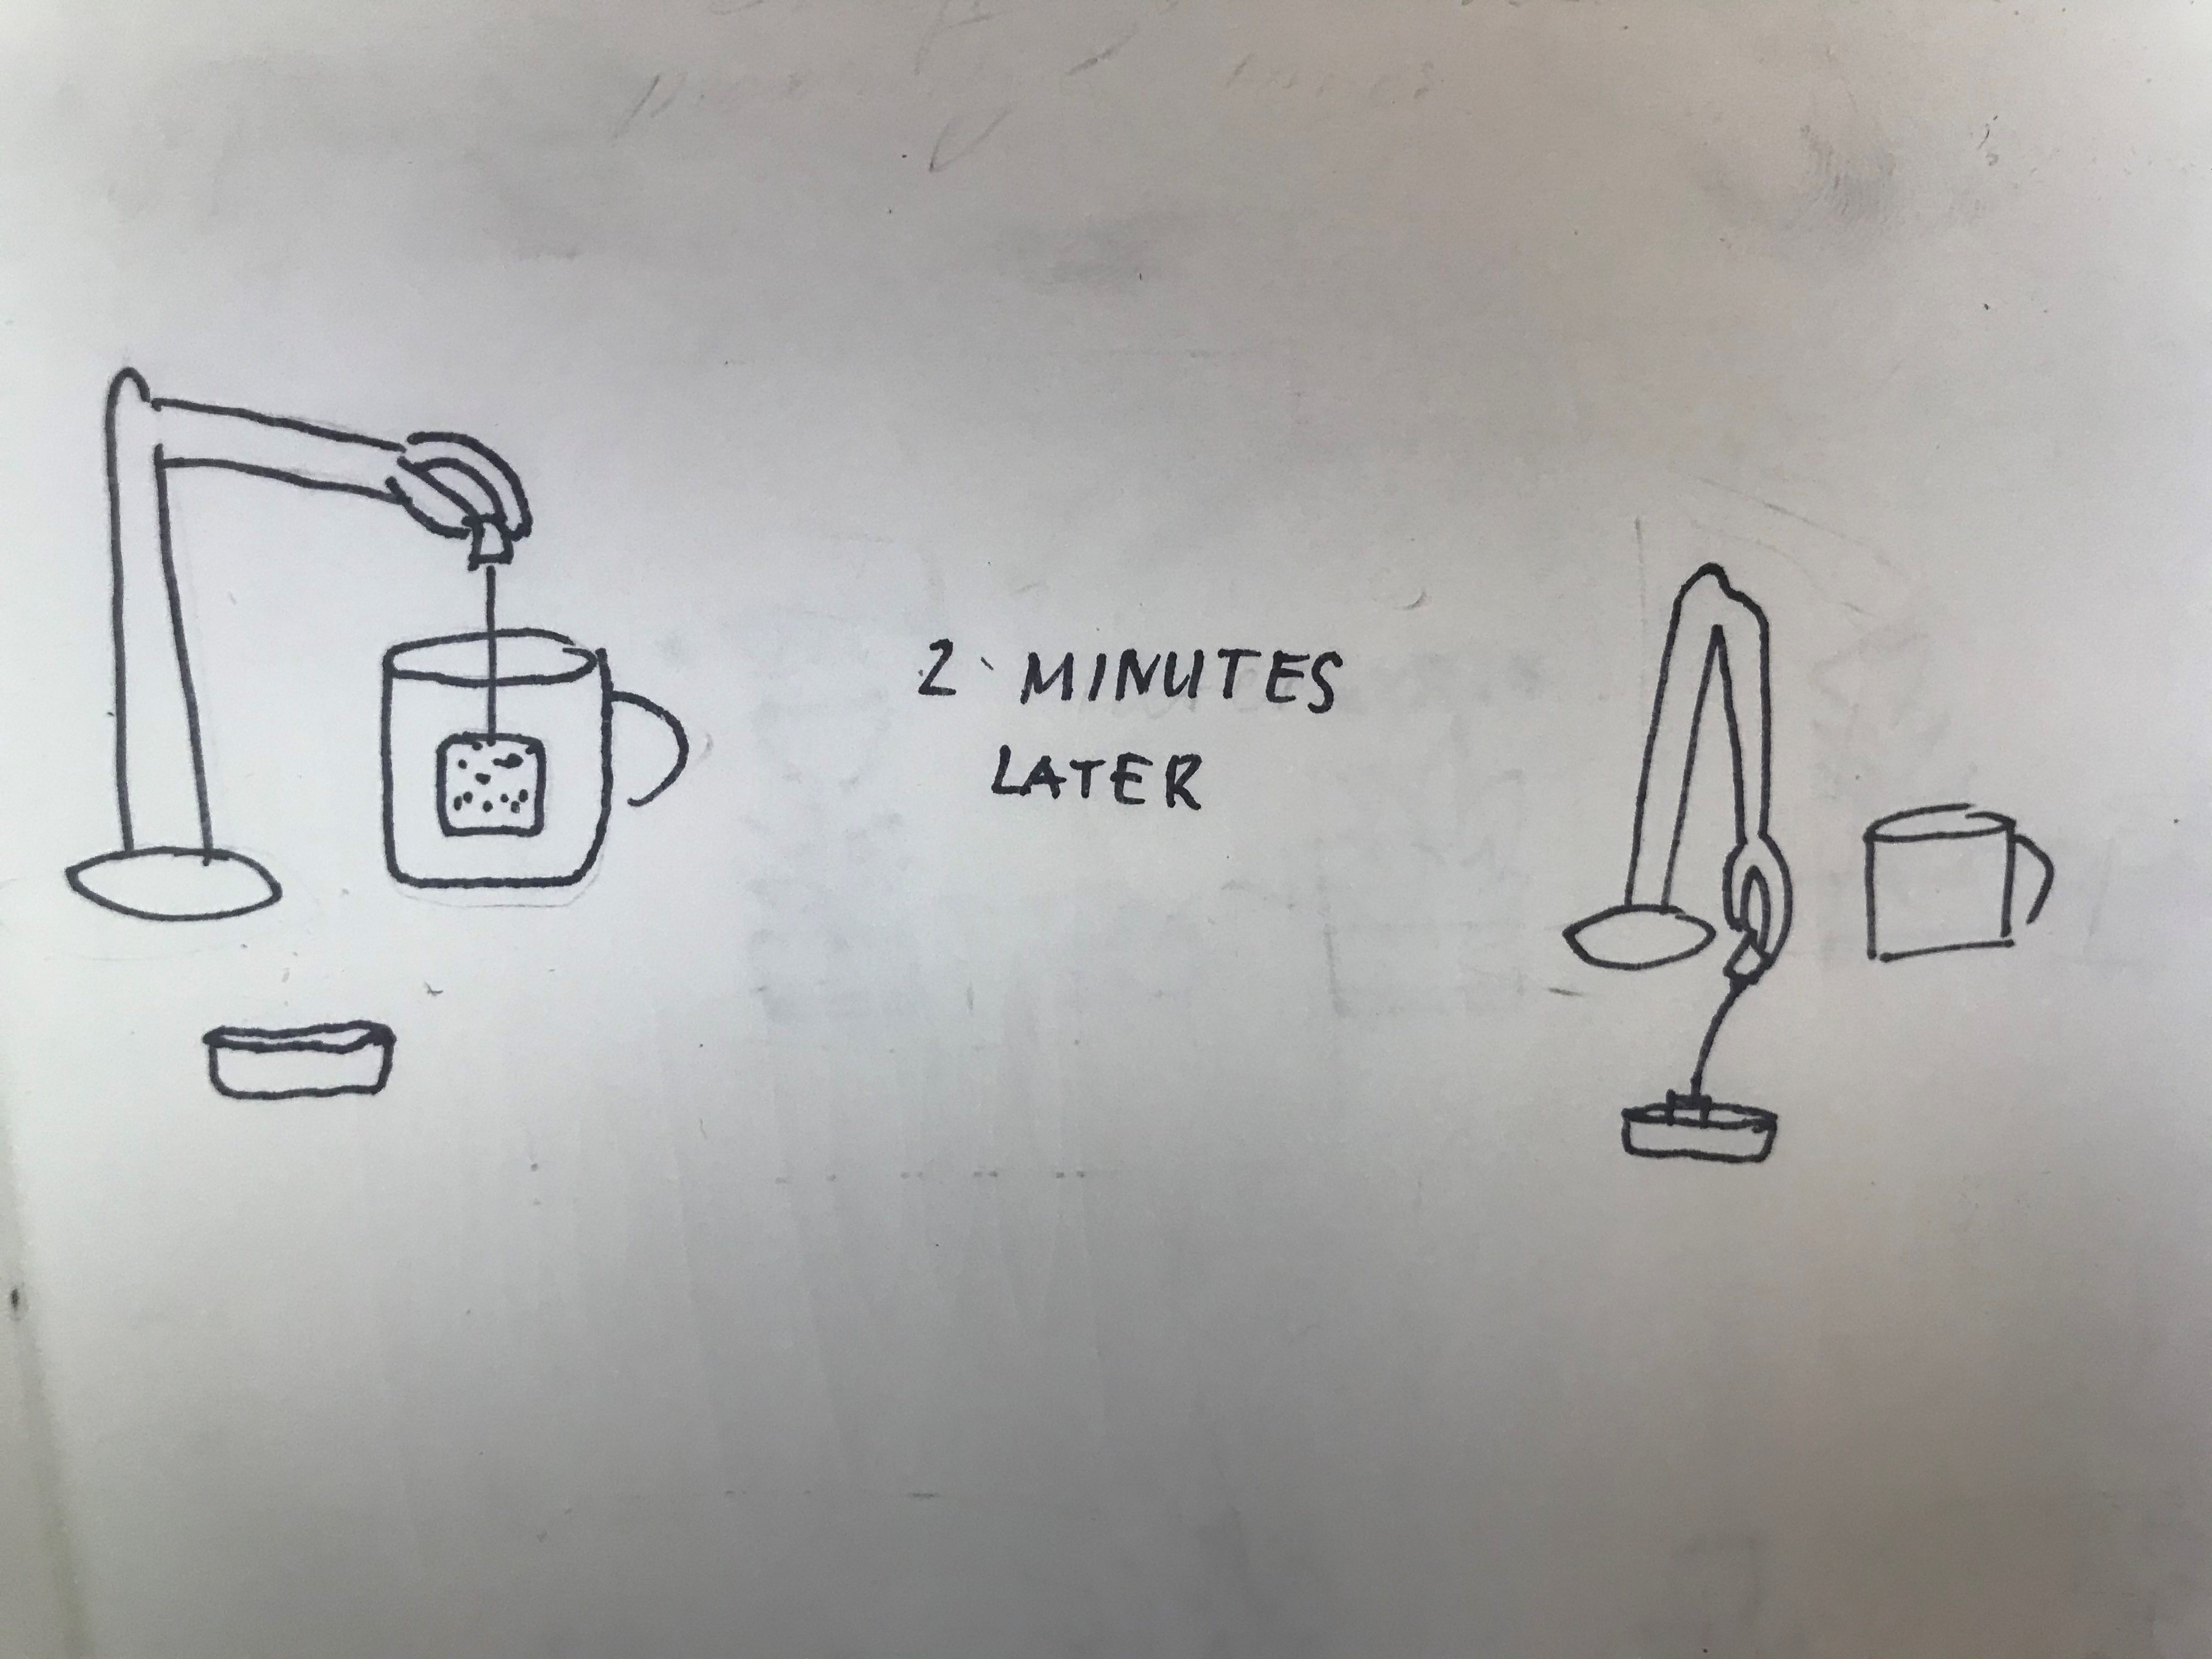 2 MINUTES
LATER